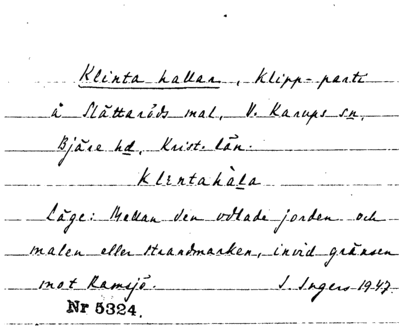 Klinta hallar, Klipp-parti
å Slättaröds mal, V. Karups sn,
Bjäre hd, Krist. län.
Klentahàla
Läge: Mellan den odlade jorden och
malen eller strandmarken, invid gränsen
mot Ramsjö. I. Ingers 1947.
Nr 5324.